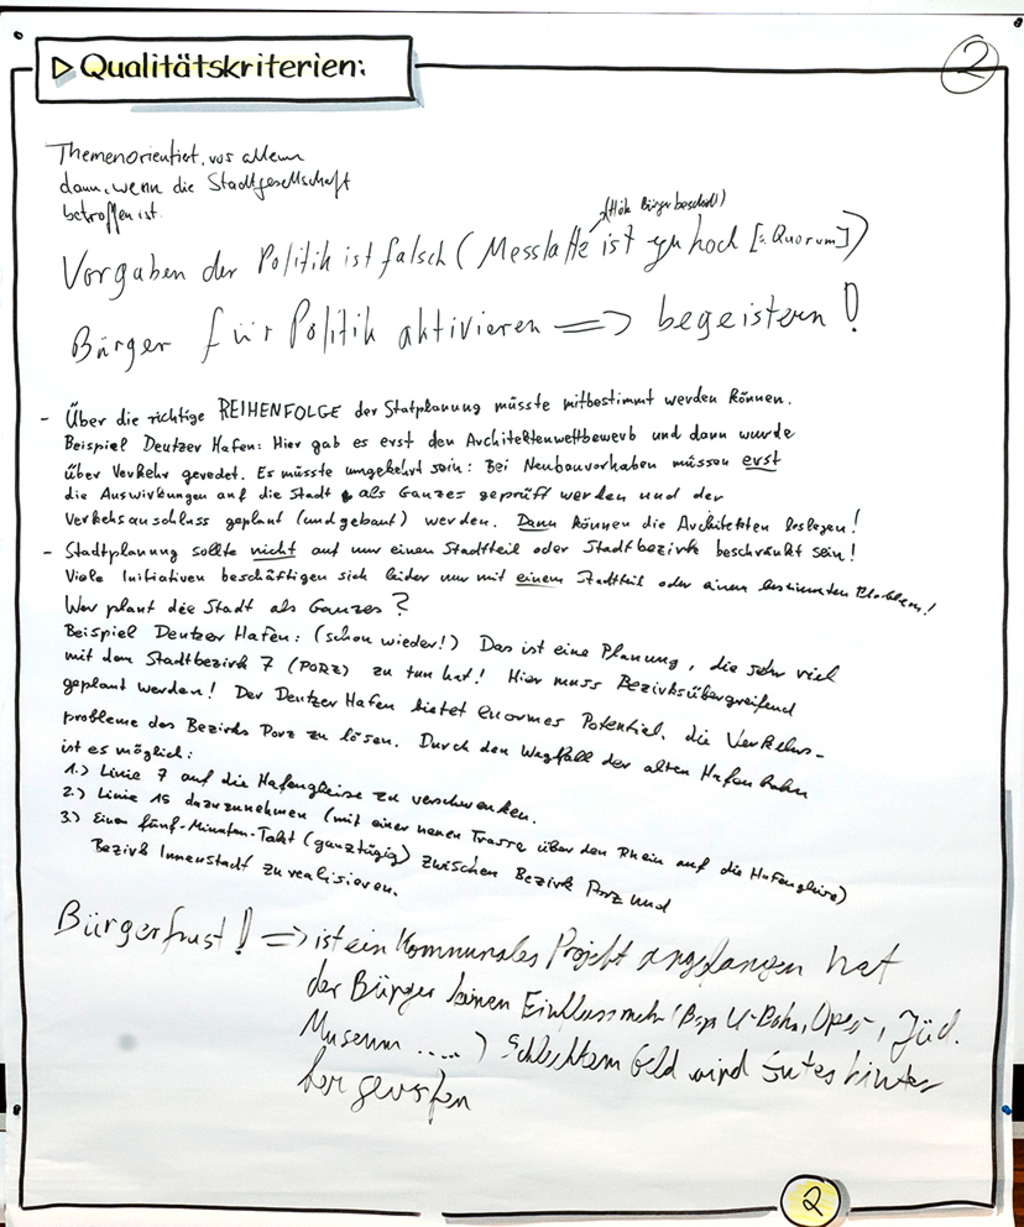 ▷ Qualitätskriterien:
2
Themenorientiert, vor allem
dann, wenn die Stadtgesellschaft
betroffen ist.
Bürgerbescheid)
Vorgaben der Politik ist falsch (Messlatte ist zu hoch [s. Quorum])
Bürger für Politik aktivieren => begeistern!
- Über die richtige REIHENFOLGE der Statplanung müsste mitbestimmt werden können.
Beispiel Deutzer Hafen: Hier gab es erst den Architektenwettbewerb und dann wurde
über Verkehr geredet. Es müsste umgekehrt sein: Bei Neubauvorhaben müssen erst
die Auswirkungen auf die Stadt als Ganzes geprüft werden und der
Verkehsanschluss geplant (und gebaut) werden. Dann können die Architekten loslegen!
- Stadtplanung sollte nicht auf nur einen Stadtteil oder Stadtbezirk beschränkt sein!
Viele Initiativen beschäftigen sich leider nur mit einem Stadtteil oder einem bestimmten Problem!
Wer plant die Stadt als Ganzes?
Beispiel Deutzer Hafen: (schon wieder!) Das ist eine Planung, die sehr viel
mit dem Stadtbezirk 7 (PORZ) zu tun hat! Hier muss Bezirksübergreifend
geplant werden! Der Deutzer Hafen bietet enormes Potential, die Verkehrs-
probleme des Bezirks Porz zu lösen. Durch den Wegfall der alten Hafenbahn
ist es möglich:
1.) Linie 7 auf die Hafengleise zu verschwenken.
2.) Linie 15 dazuzunehmen (mit einer neuen Trasse über den Rhein auf die Hafengleise)
3.) Einen fünf-Minuten-Takt (ganztägig) zwischen Bezirk Porz und
Bezirk Innenstadt zu realisieren.
Bürgerfrust! => ist ein Kommunales Projekt angefangen hat
der Bürger keinen Einfluss mehr (Bsp. U-Bahn, Oper, Jüd.
Museum .....) Schlechtem Geld wird gutes hinter
her geworfen
2